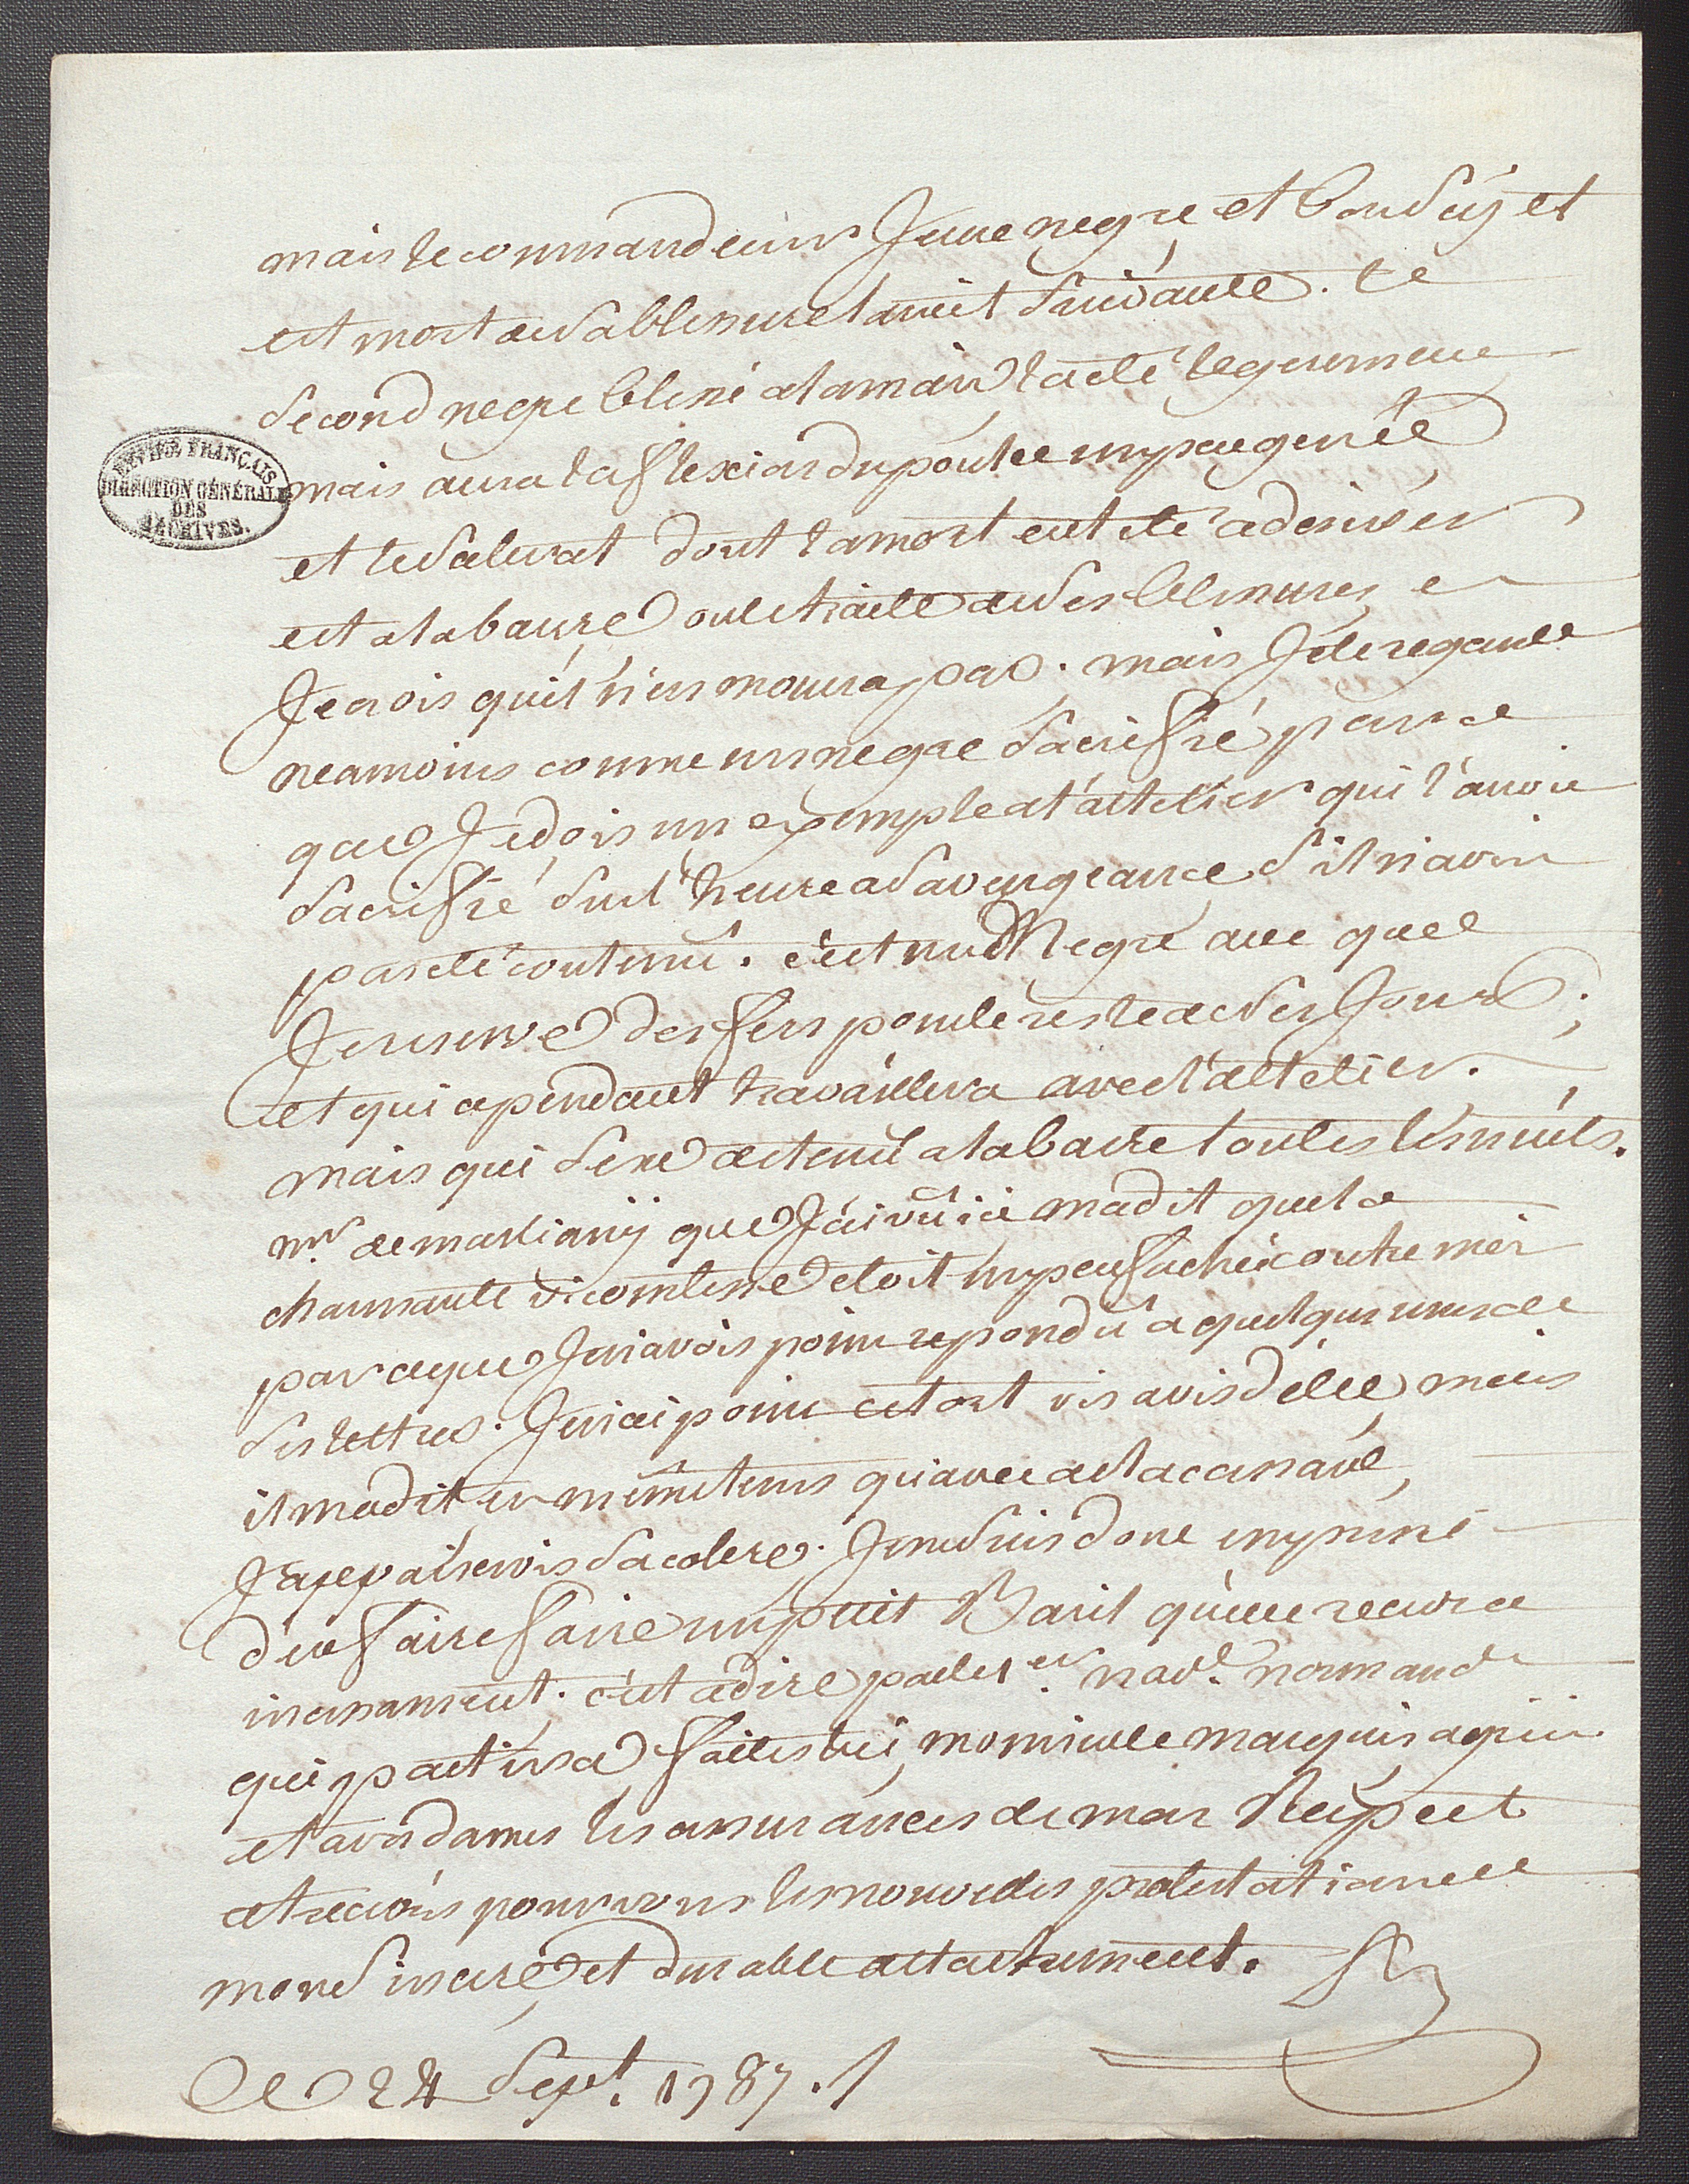 mais le commandeur Jeune negre et bon sujet
est mort de sa blessure la nuit suivante. le
second negre blessé a la main l'a été legerement
mais aura la flexion du pouce un peu genée
et le scelerat dont la mort eut été a desirer
est a la barre ou le traitte de ses blessures et
Je crois qu'il n'en mourra pas. mais Je le regarde
neamoins comme un negre sacriffié parce
que Je dois un exemple a l'attelier qui l'auroit
sacriffié sur l'heure a sa vengeance s'il n'avoit
pas été contenu. c'est un Negre au quel
Je reserve des fers pour le reste de ses Jours;
et qui cependant travaillera avec l'attelier.
mais qui sera detenu a la barre toutes les nuits.
Mr. de martigny que J'ai vu ici m'a dit que la
charmante vicomtesse etoit un peu fachée contre moi
parceque Je n'avois point repondu a quelques unes de
ses lettres. Je n'ai point ce tort vis a vis d'elle mais
il m'a dit en même tems qu'avec de la cassave
J'appaiserois sa colere. Je me suis donc empressé
d'en faire faire un petit Baril qu'elle recevra
incessament. c'est a dire par le 1er. nave. normand
qui partira faites lui, monsieur le marquis agreer
et a vos dames les assurances de mon Respect
et recevés pour vous les nouvelles protestations de
mon sincere et durable attachement.
Ce 24 Sept. 1787.
EMPIRE FRANÇAIS
DIRECTION GÉNÉRALE
DES
ARCHIVES.